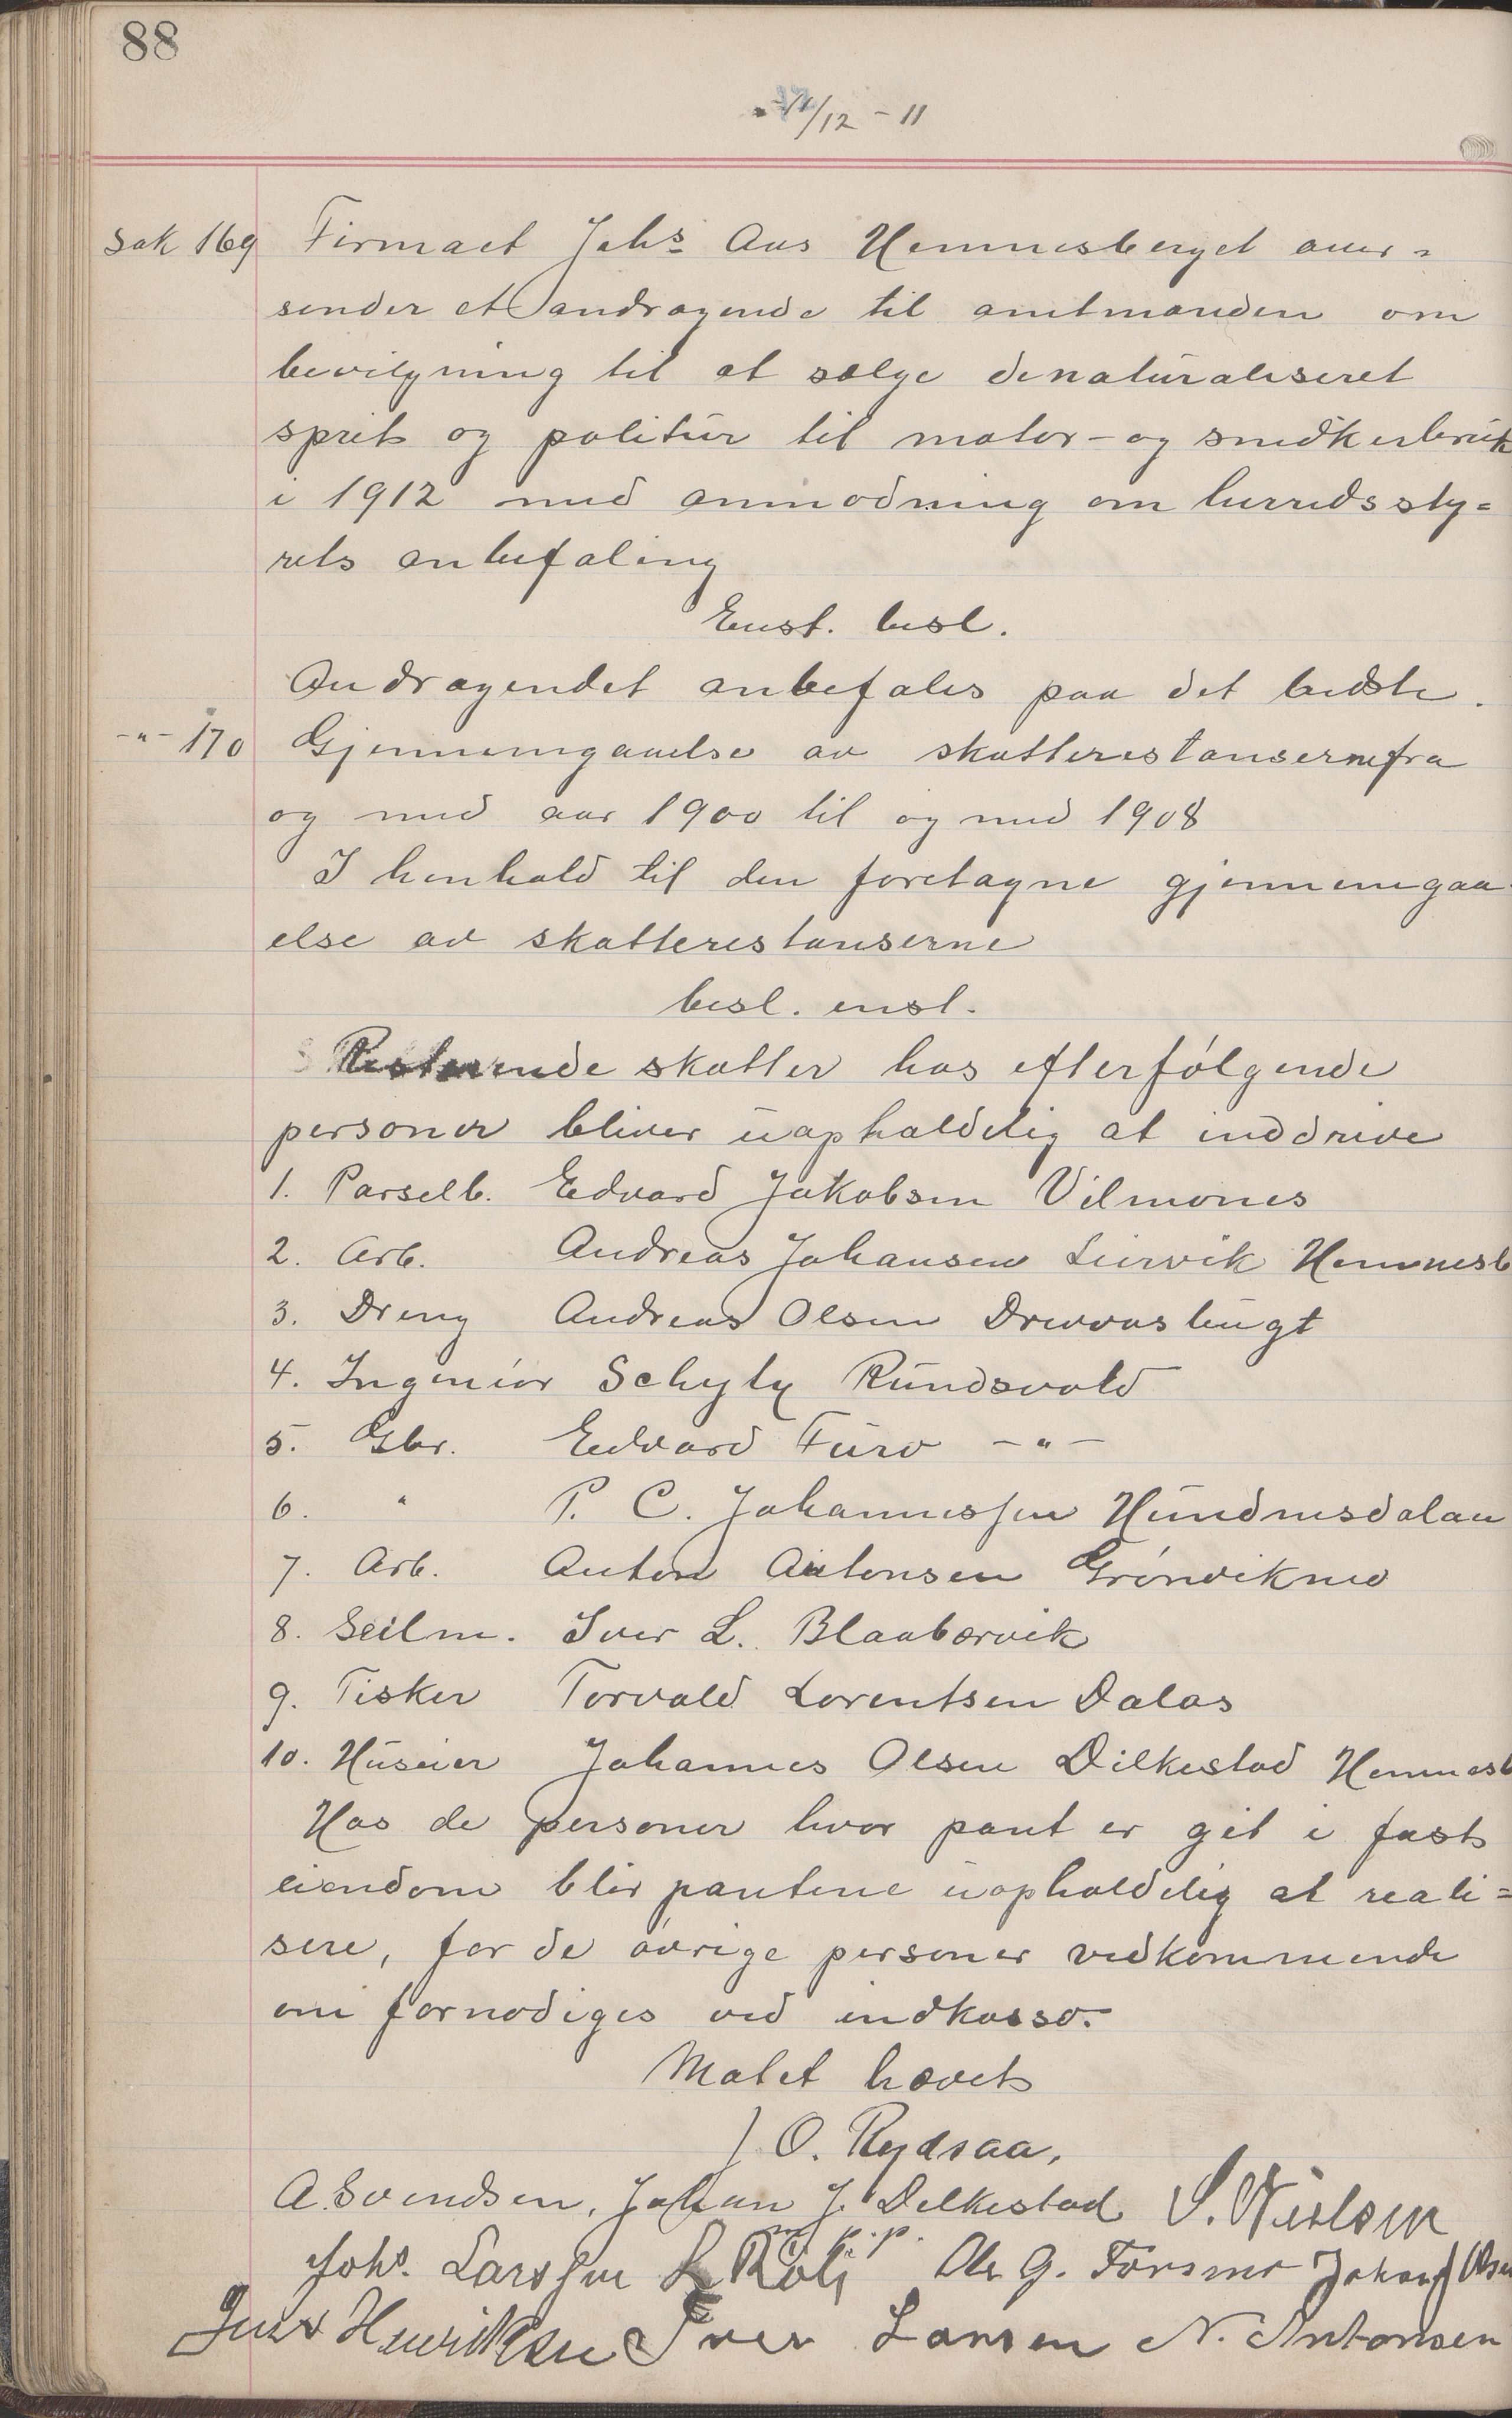 88
/12 - 11
Sak 169 Firmaet Johs Aas Hemnesberget over=
sender et andragende til amtmanden om
bevilgning til at sælge denaturaliseret
sprit og politur til motor- og snedkerbruk
i 1912 med anmodning om herredssty=
rets anbefaling
Enst. besl.
Andragendet anbefales paa det bedste.
-"- 170 Gjennemgaaelse av skatterestanserne fra
og med aar 1900 til og med 1908
I henhold til den foretagne gjennemgaa-
else av skatterestanserne
besl. enst.
Resterende skatter hos efterfølgende
personer bliver uopholdelig at inddrive
1. Parselb. Edvard Jakobsen Vilmones
2. Arb. Andreas Johansen Leirvik Hemnesb
3. Dreng Andreas Olsen Drevvasbugt
4. Ingeniør Schyly Rundsvold
5. Gbr. Edvard Furo -"-
6. " P. C. Johannessen Hundnesdalan
7. Arb. Anton Antonsen Grønvikmo
8. Seilm. Iver L. Blaabærvik
9. Fisker Torvald Lorentsen Dalos
10. Huseier Johannes Olsen Dilkestad Hemnesb
Hos de personer hvor pant er git i fast
eiendom blir pantene uopholdelig at reali=
sere, for de øvrige personer vedkommende
om fornødiges ved indkasso.
Møtet hævet
J O. Rydsaa,
A. Svendsen, Johan J. Delkestad S. Nielsen
p.p.
Johs. Larssen L Røli Ole G. Forsmo Johan J Olsen
Jens Henriksen Iver Larsen N. Antonsen